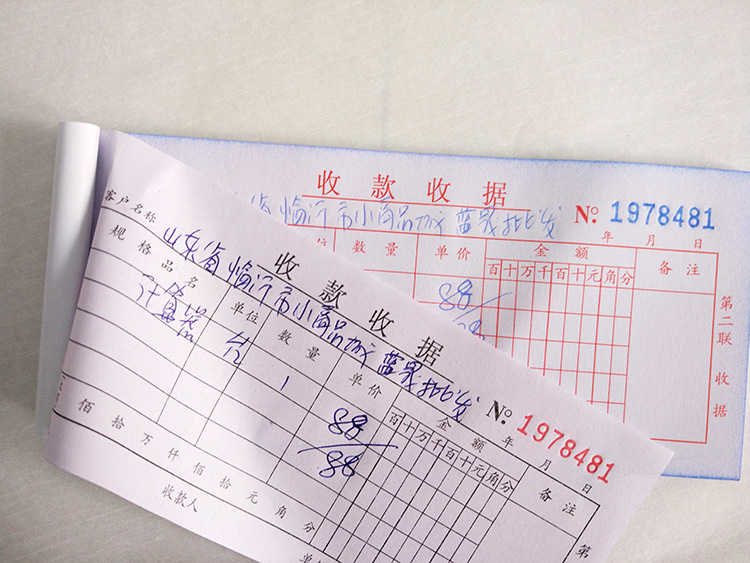 收款收据
省临沂市小商品城蓝晟批发
No. 1978481
年 月 日
位 数量 单价 金额 备注
百十万千百十元角分
88
88
第二联 收据
收款收据
客户名称 山东省临沂市小商品城蓝晟批发
No. 1978481
年 月 日
规格品名 单位 数量 单价 金额 备注
百十万千百十元角分
计算器 台 1 88
88
佰 拾 万 仟 佰 拾 元 角 分
收款人
第